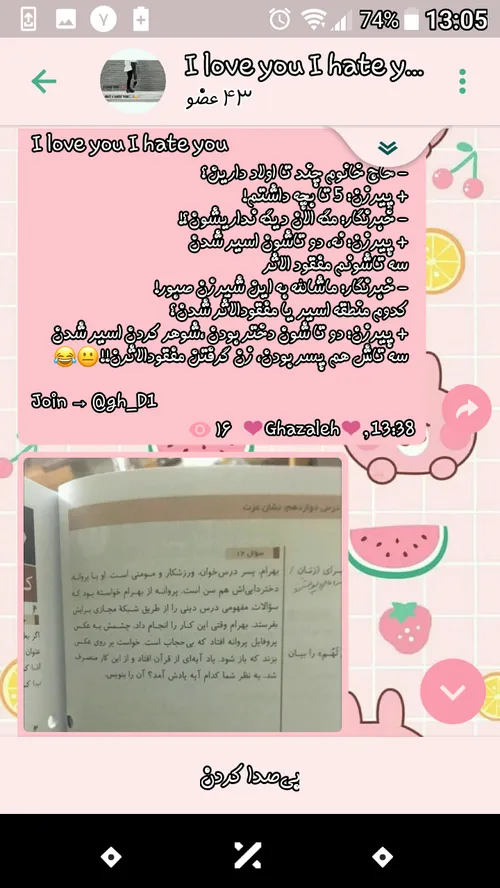 74% 13:05
I love you I hate y...
۴۳ عضو
I love you I hate you
- حاج خانوم چند تا اولاد دارین؟
+ پیرزن: 5 تا بچه داشتم!
- خبرنگار: مگه الان دیگه نداریشون؟!
+ پیرزن: نه، دو تاشون اسیر شدن
سه تاشونم مفقود الاثر
- خبرنگار: ماشالله به این شیرزن صبور!
کدوم منطقه اسیر یا مفقودالاثر شدن؟
+ پیرزن: دو تا شون دختر بودن ،شوهر کردن اسیر شدن
سه تاش هم پسر بودن، زن گرفتن مفقودالاثرن!!😐😂
Join → @gh_D1
۱۶ ❤Ghazaleh❤, 13:38
درس دوازدهم: نشان عزت
سؤال ۱۲
بهرام، پسر درس‌خوان، ورزشکار و مومنی است. او با پروانه
دختردایی‌اش هم سن است. پروانه از بهرام خواسته بود که
سؤالات مفهومی درس دینی را از طریق شبکهٔ مجازی برایش
بفرستد. بهرام وقتی این کار را انجام داد، چشمش به عکس
پروفایل پروانه افتاد که بی‌حجاب است. خواست بر روی عکس
بزند که باز شود. یاد آیه‌ای از قرآن افتاد و از این کار منصرف
شد. به نظر شما کدام آیه یادش آمد؟ آن را بنویس.
را بیان
بی‌صدا کردن